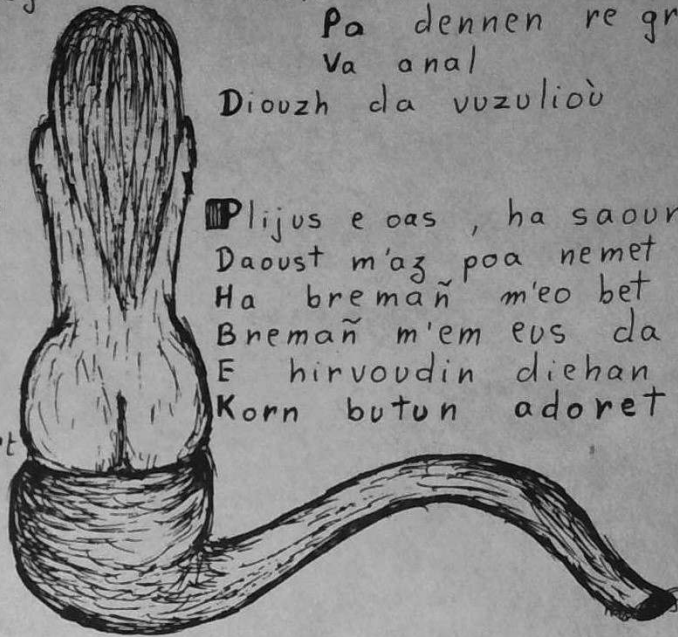 Pa dennen re
Va anal
Diouzh da vuzulioù
Plijus e oas, ha
Daoust m'az poa nemet
Ha bremañ m'eo bet
Bremañ m'em eus da
E hirvoudin diehan
Korn butun adoret